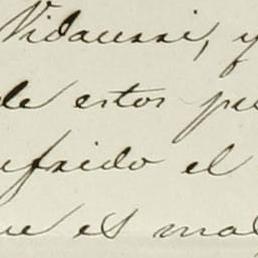 Vidaurri, y
de estos pu
ufrido el
ue es mal